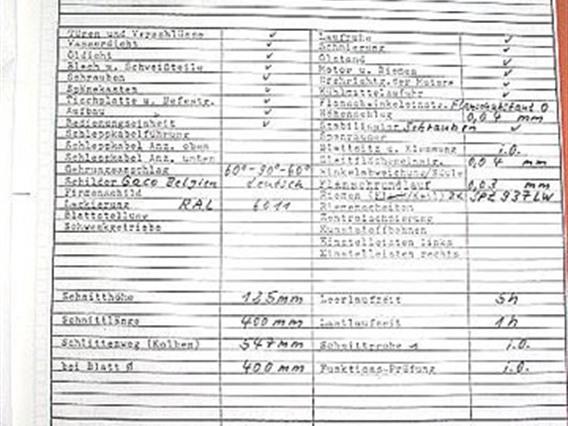 Türen und Verschlüsse ✓ Laufruhe ✓
Wasserdicht ✓ Schmierung ✓
Öldicht ✓ Ölstand ✓
Blech u. Schweißteile ✓ Motor u. Riemen ✓
Schrauben ✓ Drehrichtg. der Motore ✓
Spänekasten ✓ Kühlmittelzufuhr ✓
Tischplatte u. Befestg. ✓ Flanschabstand 0
Aufbau ✓ Höhenschlag 0,04 mm
Bedienungseinheit ✓ Schrauben ✓
Schleppkabelführung Spänräumer
Schleppkabel Anz. oben Blattsitz u. Klemmung i.O.
Schleppkabel Anz. unten 0,04 mm
Gehrungsanschlag 60°-90°-60° Winkelabweichung/Säule
Schilder Gaco Belgien deutsch Planschrundlauf 0,03 mm
Firmenschild Riemen SPZ 937LW
Lackierung RAL 6011
Blattstellung Zentralschmierung
Schwenkgetriebe Kunststoffbahnen
Einstelleisten links
Einstelleisten rechts
Schnitthöhe 135mm Leerlaufzeit 5h
Schnittlänge 400mm Lastlaufzeit 1h
Schlittenweg (Kolben) 547mm Schnittprobe i.O.
bei Blatt Ø 400mm Funktions-Prüfung i.O.